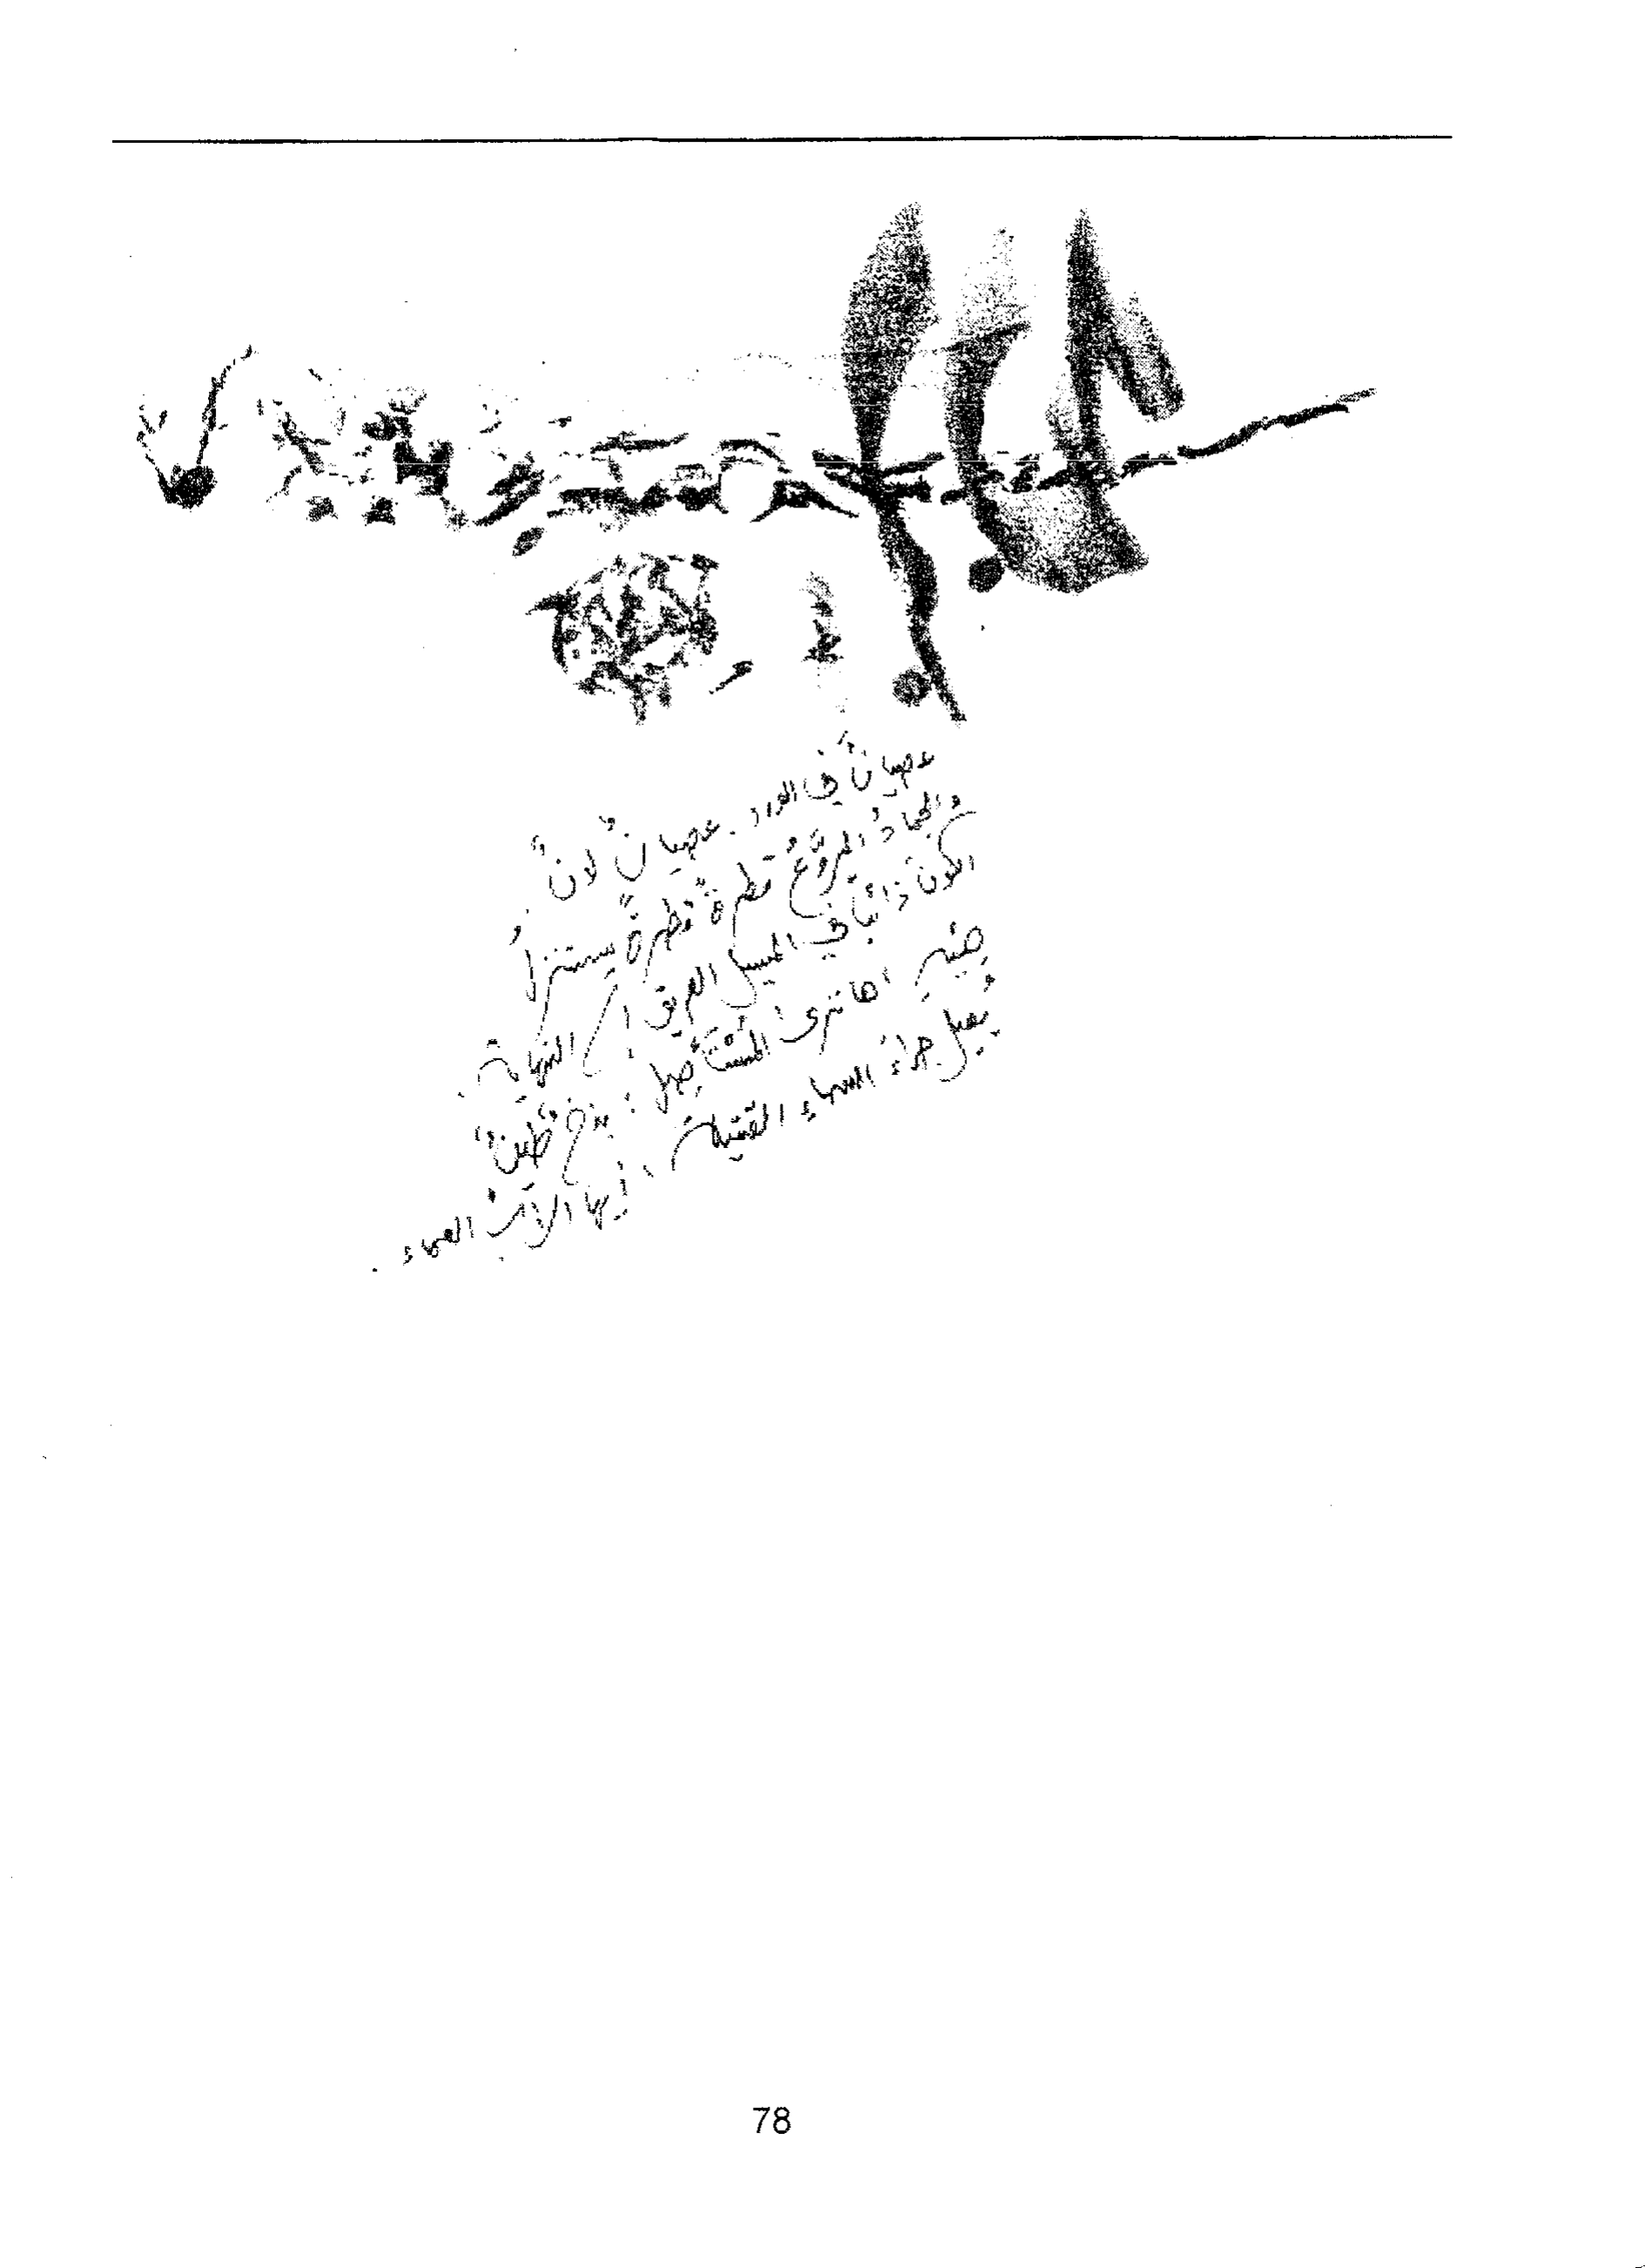 عصيانٌ في الورد. عصيانٌ لانَ
والجمادُ المروَّعُ قطرةً قطرةً يستنزلُ
الكونَ ذائباً في المسيل العريق إلى النهاية.
ها نرى المستأصل: بذخ
يُعيل جراءَ السماء القتيلة، أيها الأبُ العماء.
78